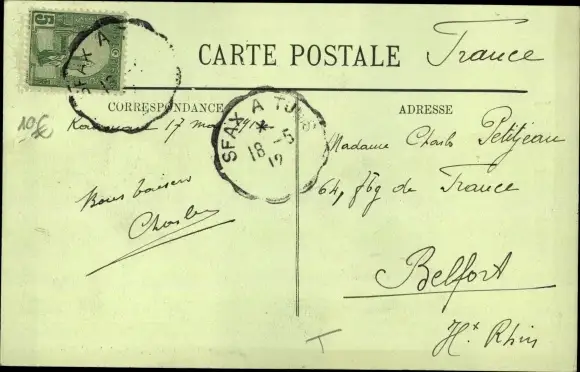 5
SFAX A
CARTE POSTALE
France
CORRESPONDANCE
ADRESSE
10€
Kairouan 17 mai 1912
SFAX A TUNIS
* 18 -5
12
Madame Charles Petitjean
64, fbg de France
Bons baisers
Charles
Belfort
Ht Rhin
T